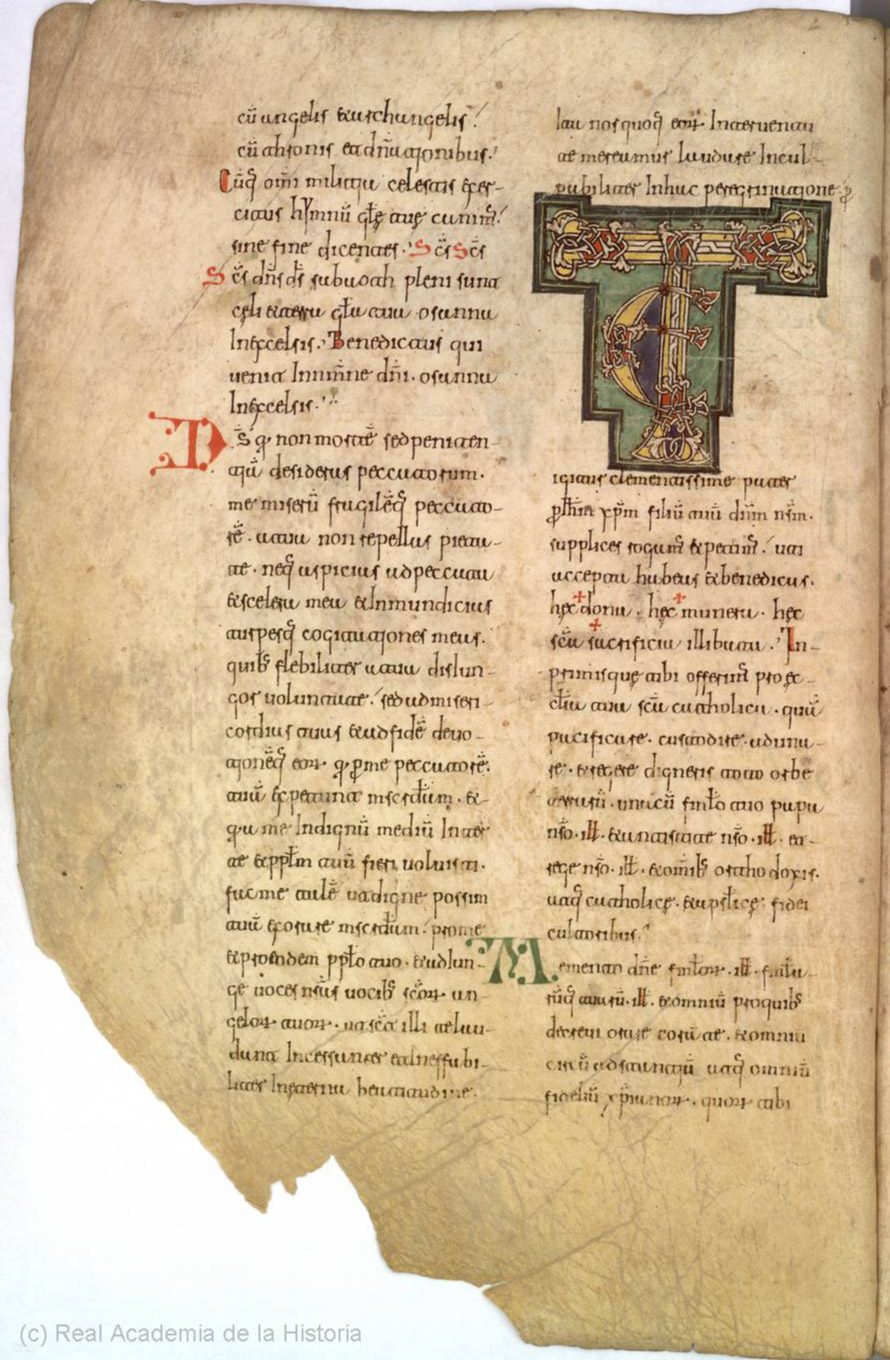 cū angelis & archangelis
cū thronis et dn̄ationibus.
Cūq̄ om̄i militia celestis exer-
citus hymnū gl̄e tue canim̄
sine fine dicentes. S c̄s Sc̄s
Sc̄s dn̄s ds̄ sabaoth pleni sunt
celi & terra gl̄a tua osanna
Inexcelsis. Benedictus qui
uenit Innom̄ne dn̄i. osanna
Inexcelsis.
Ds̄ q non mortē sed peniten-
tiā desideras peccatorum.
me miserū fragilēq̄ peccato-
rē. tua non repellas pieta-
te. neq̄ aspicias ad peccata
& scelera mea & Inmundicias
turpesq̄ cogitationes meas.
quib̄ flebiliter a tua disiun-
gor uoluntate. sed ad miseri-
cordias tuas & ad fidē deuo-
tionēq̄ eor q p me peccatorē.
tuā expectant mscdiam. &-
q a me Indignū mediū Inter
te & pplm tuū fieri uoluisti.
fac me talē ut digne possim
tuā exorare mscdiam. pro me
& pro eodem pplo tuo. & adiun-
ge uoces nr̄as uocib̄ sc̄or an-
gelor tuor. ut sic̄ illi te lau-
dant Incessanter et Ineffabi-
liter Ineterna beatitudine.
Ita nos quoq̄ eor Interuentu
te mereamur laudare Incul-
pabiliter Inhac peregrinatione. p
TE
igitur clementissime pater
p Ihm xp̄m filiū tuū dnm nr̄m.
supplices rogam̄ & petim̄. uti
accepta habeas & benedicas.
hec dona. hec munera. hec
sc̄a sacrificia illibata. In-
primisque tibi offerim̄ pro ec-
clia tua sc̄a catholica. quā
pacificare. custodire. aduna-
re. & regere digneris toto orbe
terrarū. una cū fmlo tuo papa
nr̄o. ill. & antistite nr̄o. ill. et
rege nr̄o. ill. & omib̄ orthodoxis.
atq̄ catholice. & aplice fidei
cultoribus.
Memento dn̄e fmlor. ill. fmla-
rūq̄ tuarū. ill. & omniū pro quib̄
decreui orare corā te. & omniu
circū adstantiū atq̄ omniū
fideliū xpianor. quor tibi
(c) Real Academia de la Historia